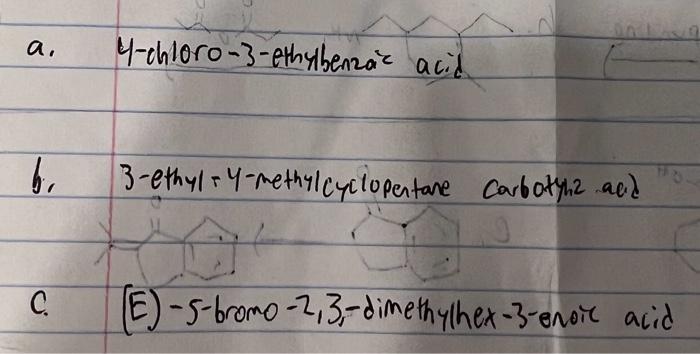 a. 4-chloro-3-ethylbenzoic acid
b. 3-ethyl-4-methylcyclopentane carboxylic acid
c. (E)-5-bromo-2,3,-dimethylhex-3-enoic acid